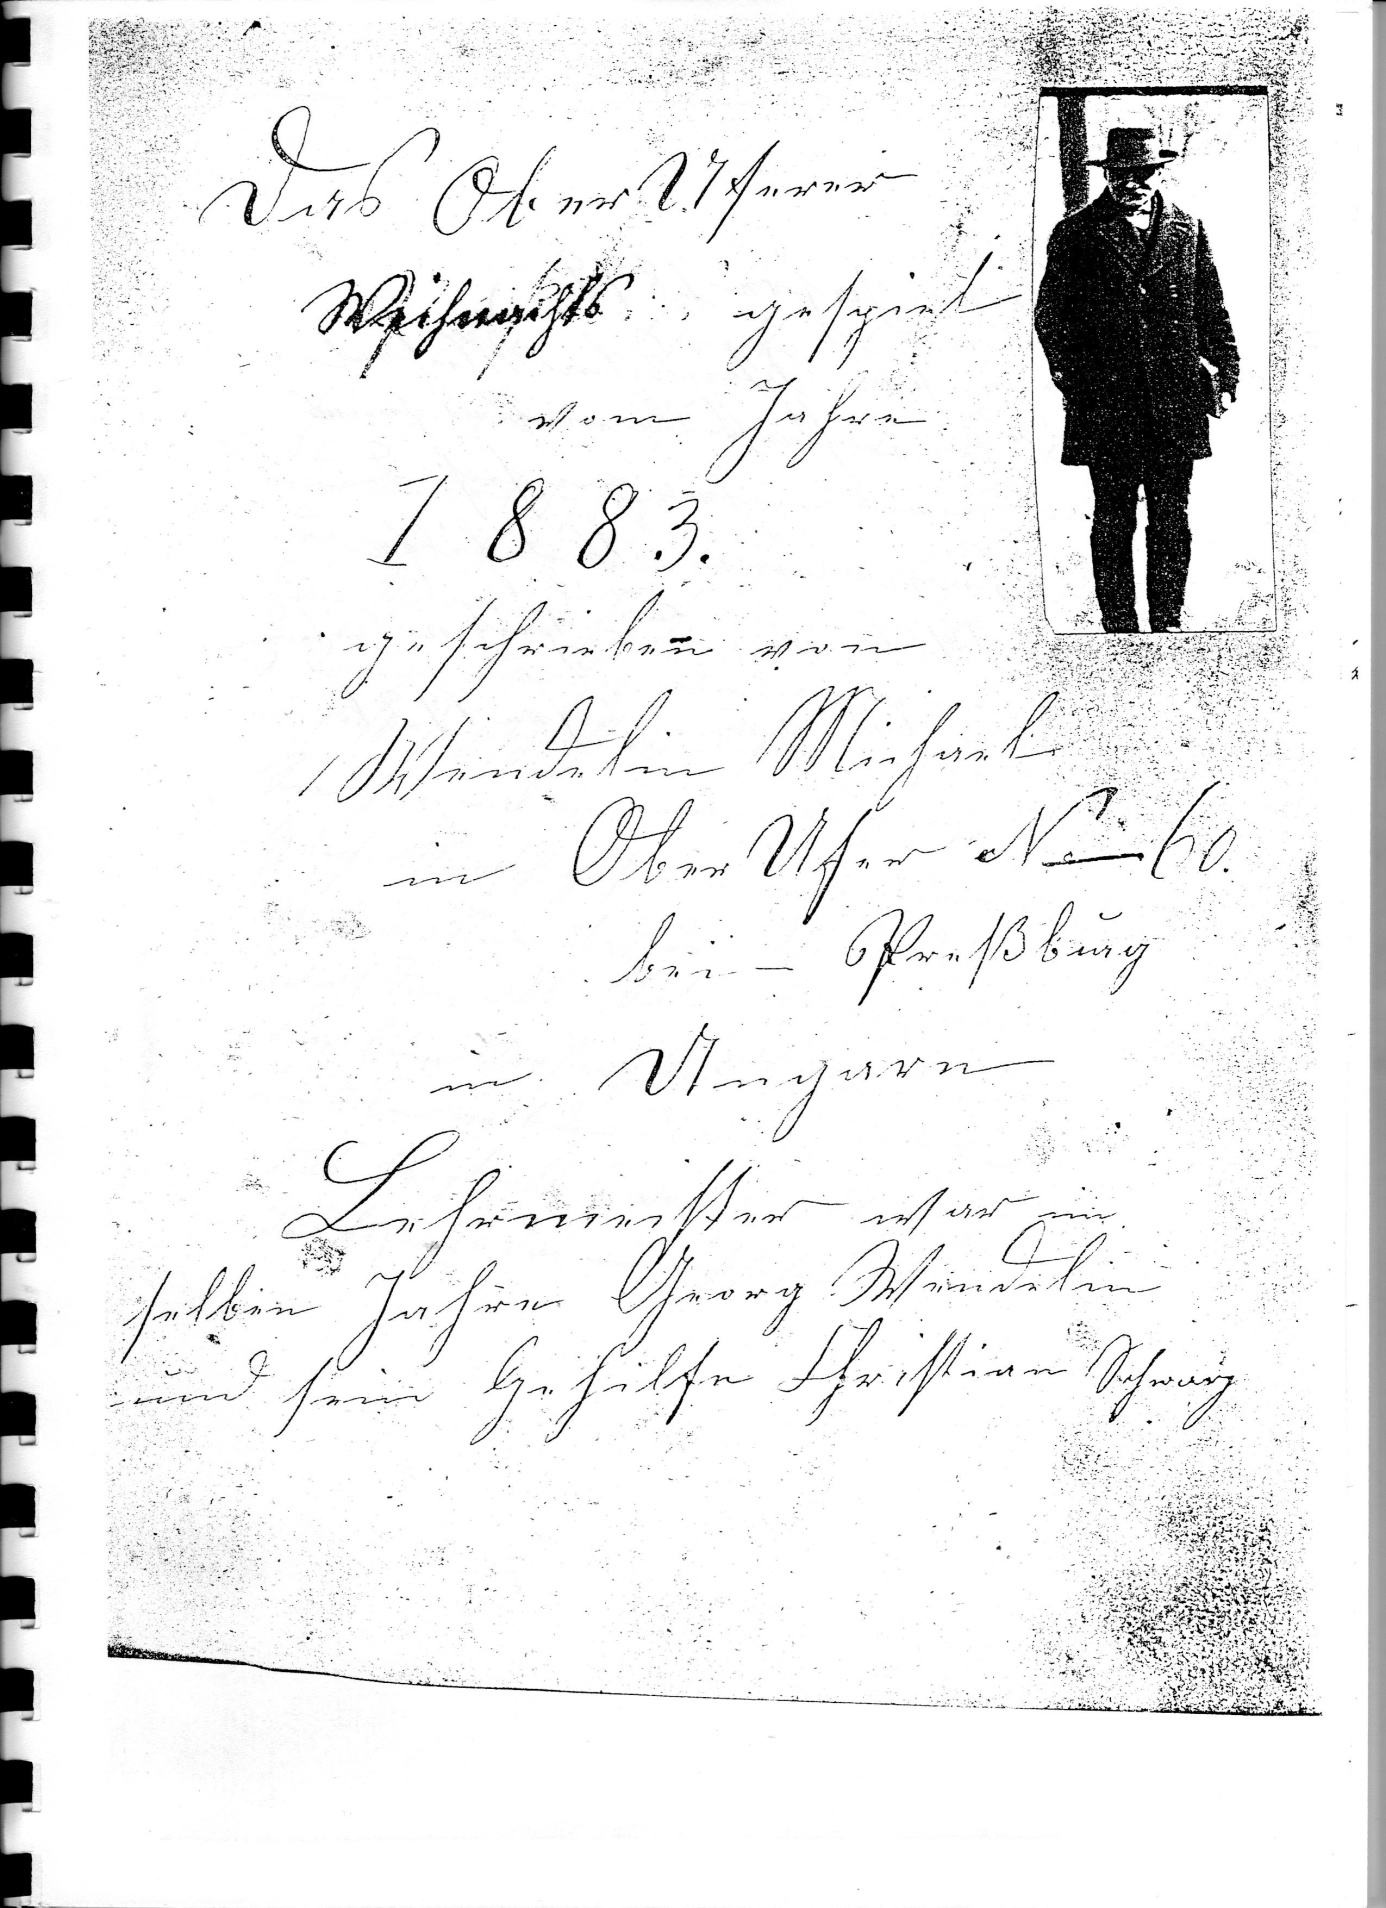 Das Ober Uferer
Weihnachts gespiel
vom Jahre
1883.
geschrieben von
Wendelin Michael
in Ober Ufer No 60.
bei Preßburg
in Ungarn
Lehrmeister war im
selben Jahre Georg Wendelin
und sein Gehilfe Christian Schwarz